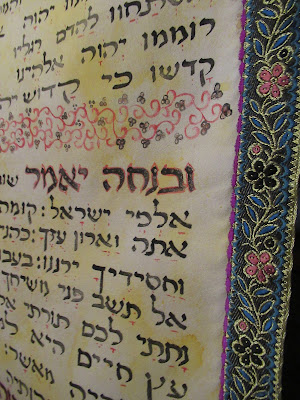 שתחוו להדם רגליו
רוממו יהוה אלהינו
קדשו כי קדוש
ובנחה יאמר
אלפי ישראל: קומה
אתה וארון עזך: כהני
וחסידיך ירננו: בעבו
אל תשב פני משיחך
נתתי לכם תורתי אל
עץ חיים היא
מאשר: